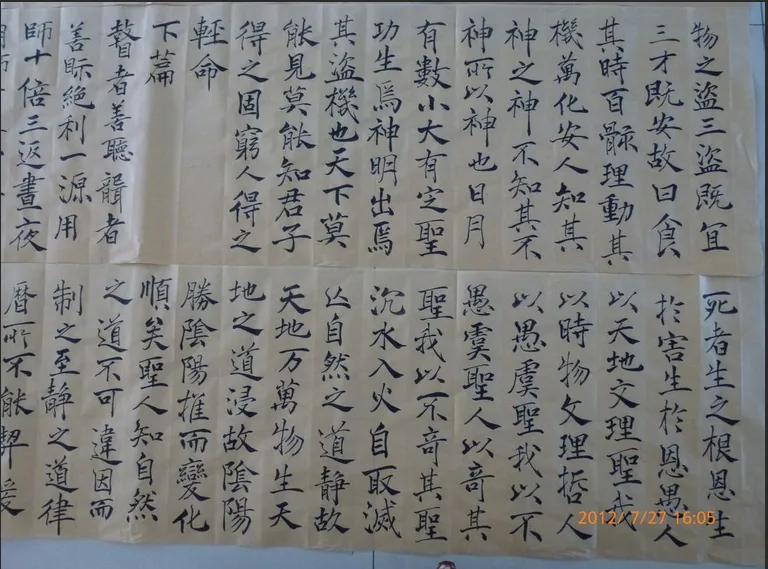 物之盗三盗既宜
三才既安故曰食
其時百骸理動其
機萬化安人知其
神之神不知其不
神所以神也日月
有數小大有定聖
功生焉神明出焉
其盗機也天下莫
能見莫能知君子
得之固窮人得之
輕命
下篇
瞽者善聽聾者
善眎絕利一源用
師十倍三返晝夜
死者生之根恩生
於害生於恩愚人
以天地文理聖我
以時物文理哲人
以愚虞聖我以不
愚虞聖人以奇其
聖我以不奇其聖
沉水入火自取滅
亾自然之道静故
天地万萬物生天
地之道浸故陰陽
勝陰陽推而變化
順矣聖人知自然
之道不可違因而
制之至静之道律
曆所不能契爰
2012/7/27 16:05